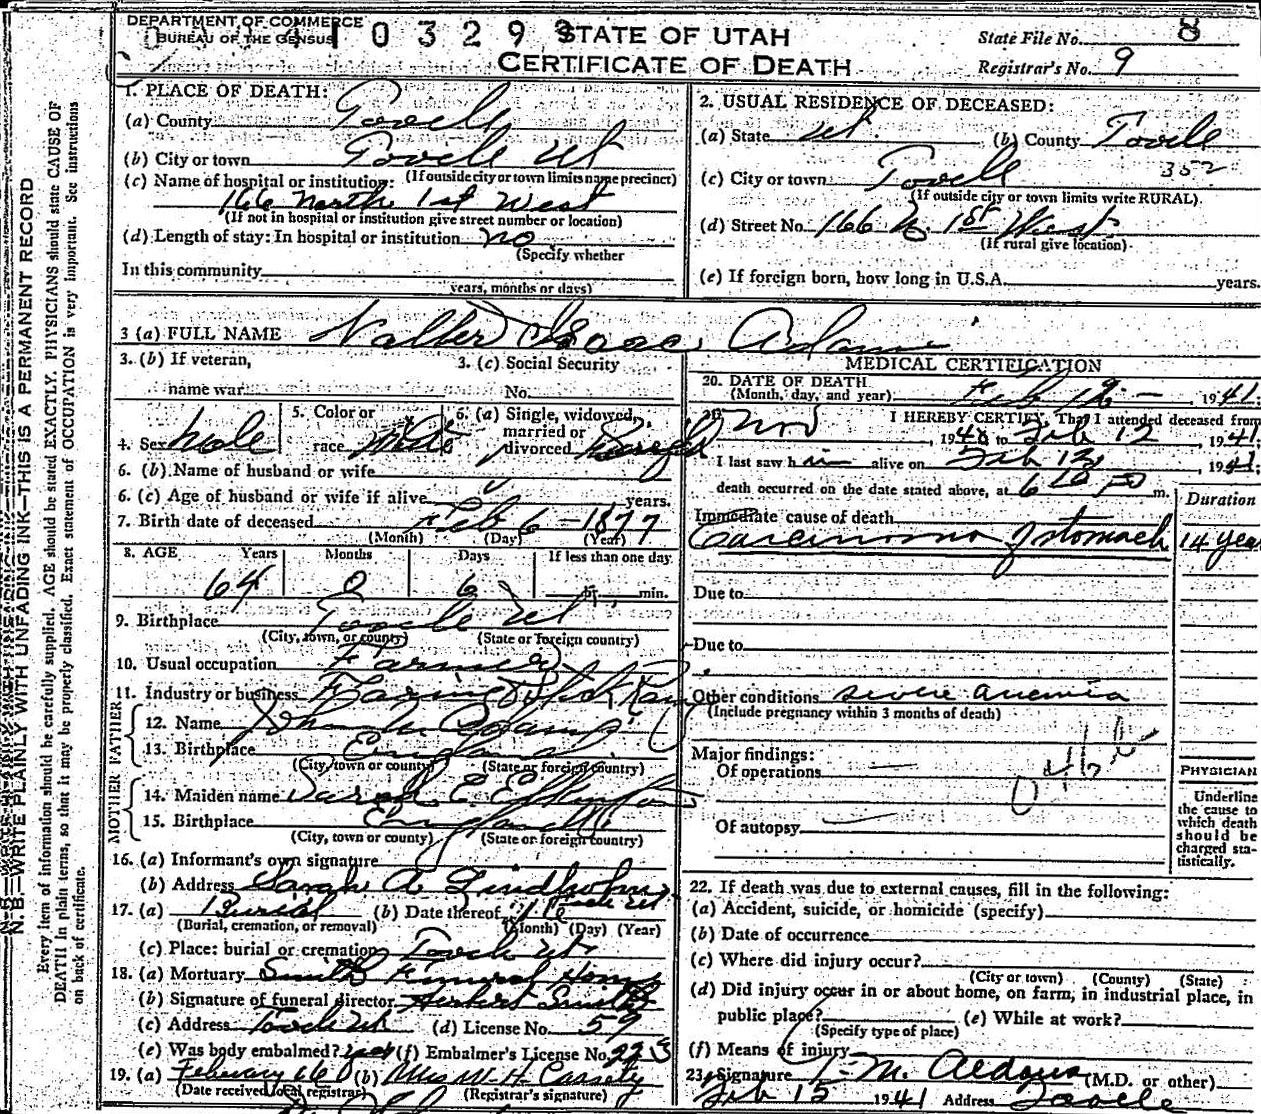 DEPARTMENT OF COMMERCE
BUREAU OF THE CENSUS
0 3 2 9
STATE OF UTAH
CERTIFICATE OF DEATH
State File No. 8
Registrar's No. 9
1. PLACE OF DEATH:
(a) County Tooele
(b) City or town Tooele Ut
(If outside city or town limits name precinct)
(c) Name of hospital or institution:
166 North 1st West
(If not in hospital or institution give street number or location)
(d) Length of stay: In hospital or institution no
(Specify whether
In this community
years, months or days)
2. USUAL RESIDENCE OF DECEASED:
(a) State Ut. (b) County Tooele
352
(c) City or town Tooele
(If outside city or town limits write RURAL)
(d) Street No. 166 N. 1st West
(If rural give location)
(e) If foreign born, how long in U.S.A. years.
3 (a) FULL NAME Isaac Adams
3. (b) If veteran,
name war
3. (c) Social Security
No.
4. Sex male
5. Color or
race white
6. (a) Single, widowed,
married or
divorced
6. (b) Name of husband or wife
6. (c) Age of husband or wife if alive years.
7. Birth date of deceased Feb 6 - 1877
(Month) (Day) (Year)
8. AGE Years Months Days If less than one day
64 0 6 hr. min.
9. Birthplace Tooele Ut
(City, town, or county) (State or foreign country)
10. Usual occupation Farmer
11. Industry or business
FATHER
12. Name Adams
13. Birthplace England
(City, town or county) (State or foreign country)
MOTHER
14. Maiden name Sarah E.
15. Birthplace England
(City, town or county) (State or foreign country)
16. (a) Informant's own signature
(b) Address Sarah A Lindholm
Tooele Ut
17. (a) Burial (b) Date thereof
(Burial, cremation, or removal) (Month) (Day) (Year)
(c) Place: burial or cremation Tooele Ut
18. (a) Mortuary Smith Funeral Home
(b) Signature of funeral director Herbert Smith
(c) Address Tooele Ut (d) License No. 59
(e) Was body embalmed? yes (f) Embalmer's License No. 223
19. (a) February (b) Mrs W. H. Cassity
(Date received local registrar) (Registrar's signature)
MEDICAL CERTIFICATION
20. DATE OF DEATH
(Month, day, and year) Feb 12 - , 1941;
21. I HEREBY CERTIFY, That I attended deceased from
Nov , 1940 to Feb 12 , 1941;
I last saw him alive on Feb 12 , 1941;
death occurred on the date stated above, at 6 m.
Immediate cause of death
Duration
Carcinoma of stomach
Due to
Due to
Other conditions severe anemia
(Include pregnancy within 3 months of death)
Major findings:
Of operations
Of autopsy
PHYSICIAN
Underline
the cause to
which death
should be
charged sta-
tistically.
22. If death was due to external causes, fill in the following:
(a) Accident, suicide, or homicide (specify)
(b) Date of occurrence
(c) Where did injury occur?
(City or town) (County) (State)
(d) Did injury occur in or about home, on farm, in industrial place, in
public place?
(Specify type of place)
(e) While at work?
(f) Means of injury
23. Signature M. Aldous (M.D. or other)
Feb 15 1941 Address Tooele
N.B.—WRITE PLAINLY WITH UNFADING INK—THIS IS A PERMANENT RECORD
Every item of information should be carefully supplied. AGE should be stated EXACTLY. PHYSICIANS should state CAUSE OF
DEATH in plain terms, so that it may be properly classified. Exact statement of OCCUPATION is very important. See instructions
on back of certificate.